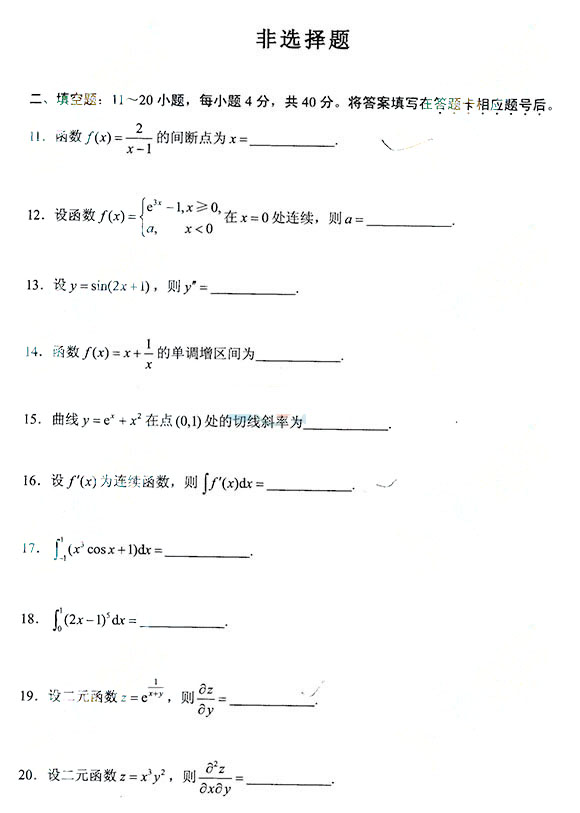 非选择题
二、填空题：11～20小题，每小题4分，共40分。将答案填写在答题卡相应题号后。
11. 函数 f(x) = 2/(x−1) 的间断点为 x = ____________.
12. 设函数 f(x) = { e^{3x} − 1, x ⩾ 0, a, x < 0 在 x = 0 处连续，则 a = ____________.
13. 设 y = sin(2x + 1)，则 y″ = ____________.
14. 函数 f(x) = x + 1/x 的单调增区间为____________.
15. 曲线 y = e^x + x² 在点 (0,1) 处的切线斜率为____________.
16. 设 f′(x) 为连续函数，则 ∫f′(x)dx = ____________.
17. ∫_{-1}^{1} (x³ cos x + 1)dx = ____________.
18. ∫_{0}^{1} (2x − 1)⁵ dx = ____________.
19. 设二元函数 z = e^{1/(x+y)}，则 ∂z/∂y = ____________.
20. 设二元函数 z = x³y²，则 ∂²z/∂x∂y = ____________.